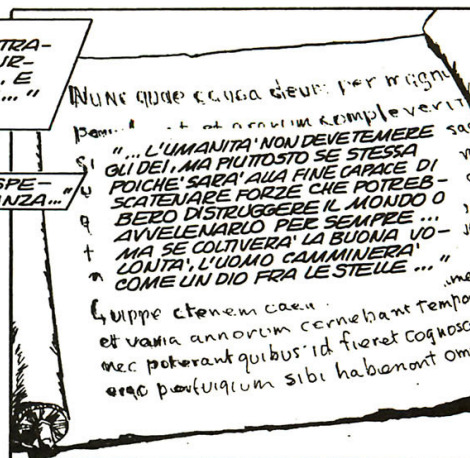 TRA-
UR-
. E
... "
SPE-
NZA..."
Nunc quae causa deum per magn
"... L'UMANITA' NON DEVE TEMERE
GLI DEI, MA PIUTTOSTO SE STESSA
POICHE' SARA' ALLA FINE CAPACE DI
SCATENARE FORZE CHE POTREB-
BERO DISTRUGGERE IL MONDO O
AVVELENARLO PER SEMPRE ...
MA SE COLTIVERA' LA BUONA VO-
LONTA', L'UOMO CAMMINERA'
COME UN DIO FRA LE STELLE ... "
et varia annorum cernebant tempo
nec poterant quibus id fieret cognosc
ergo perfugium sibi habebant om